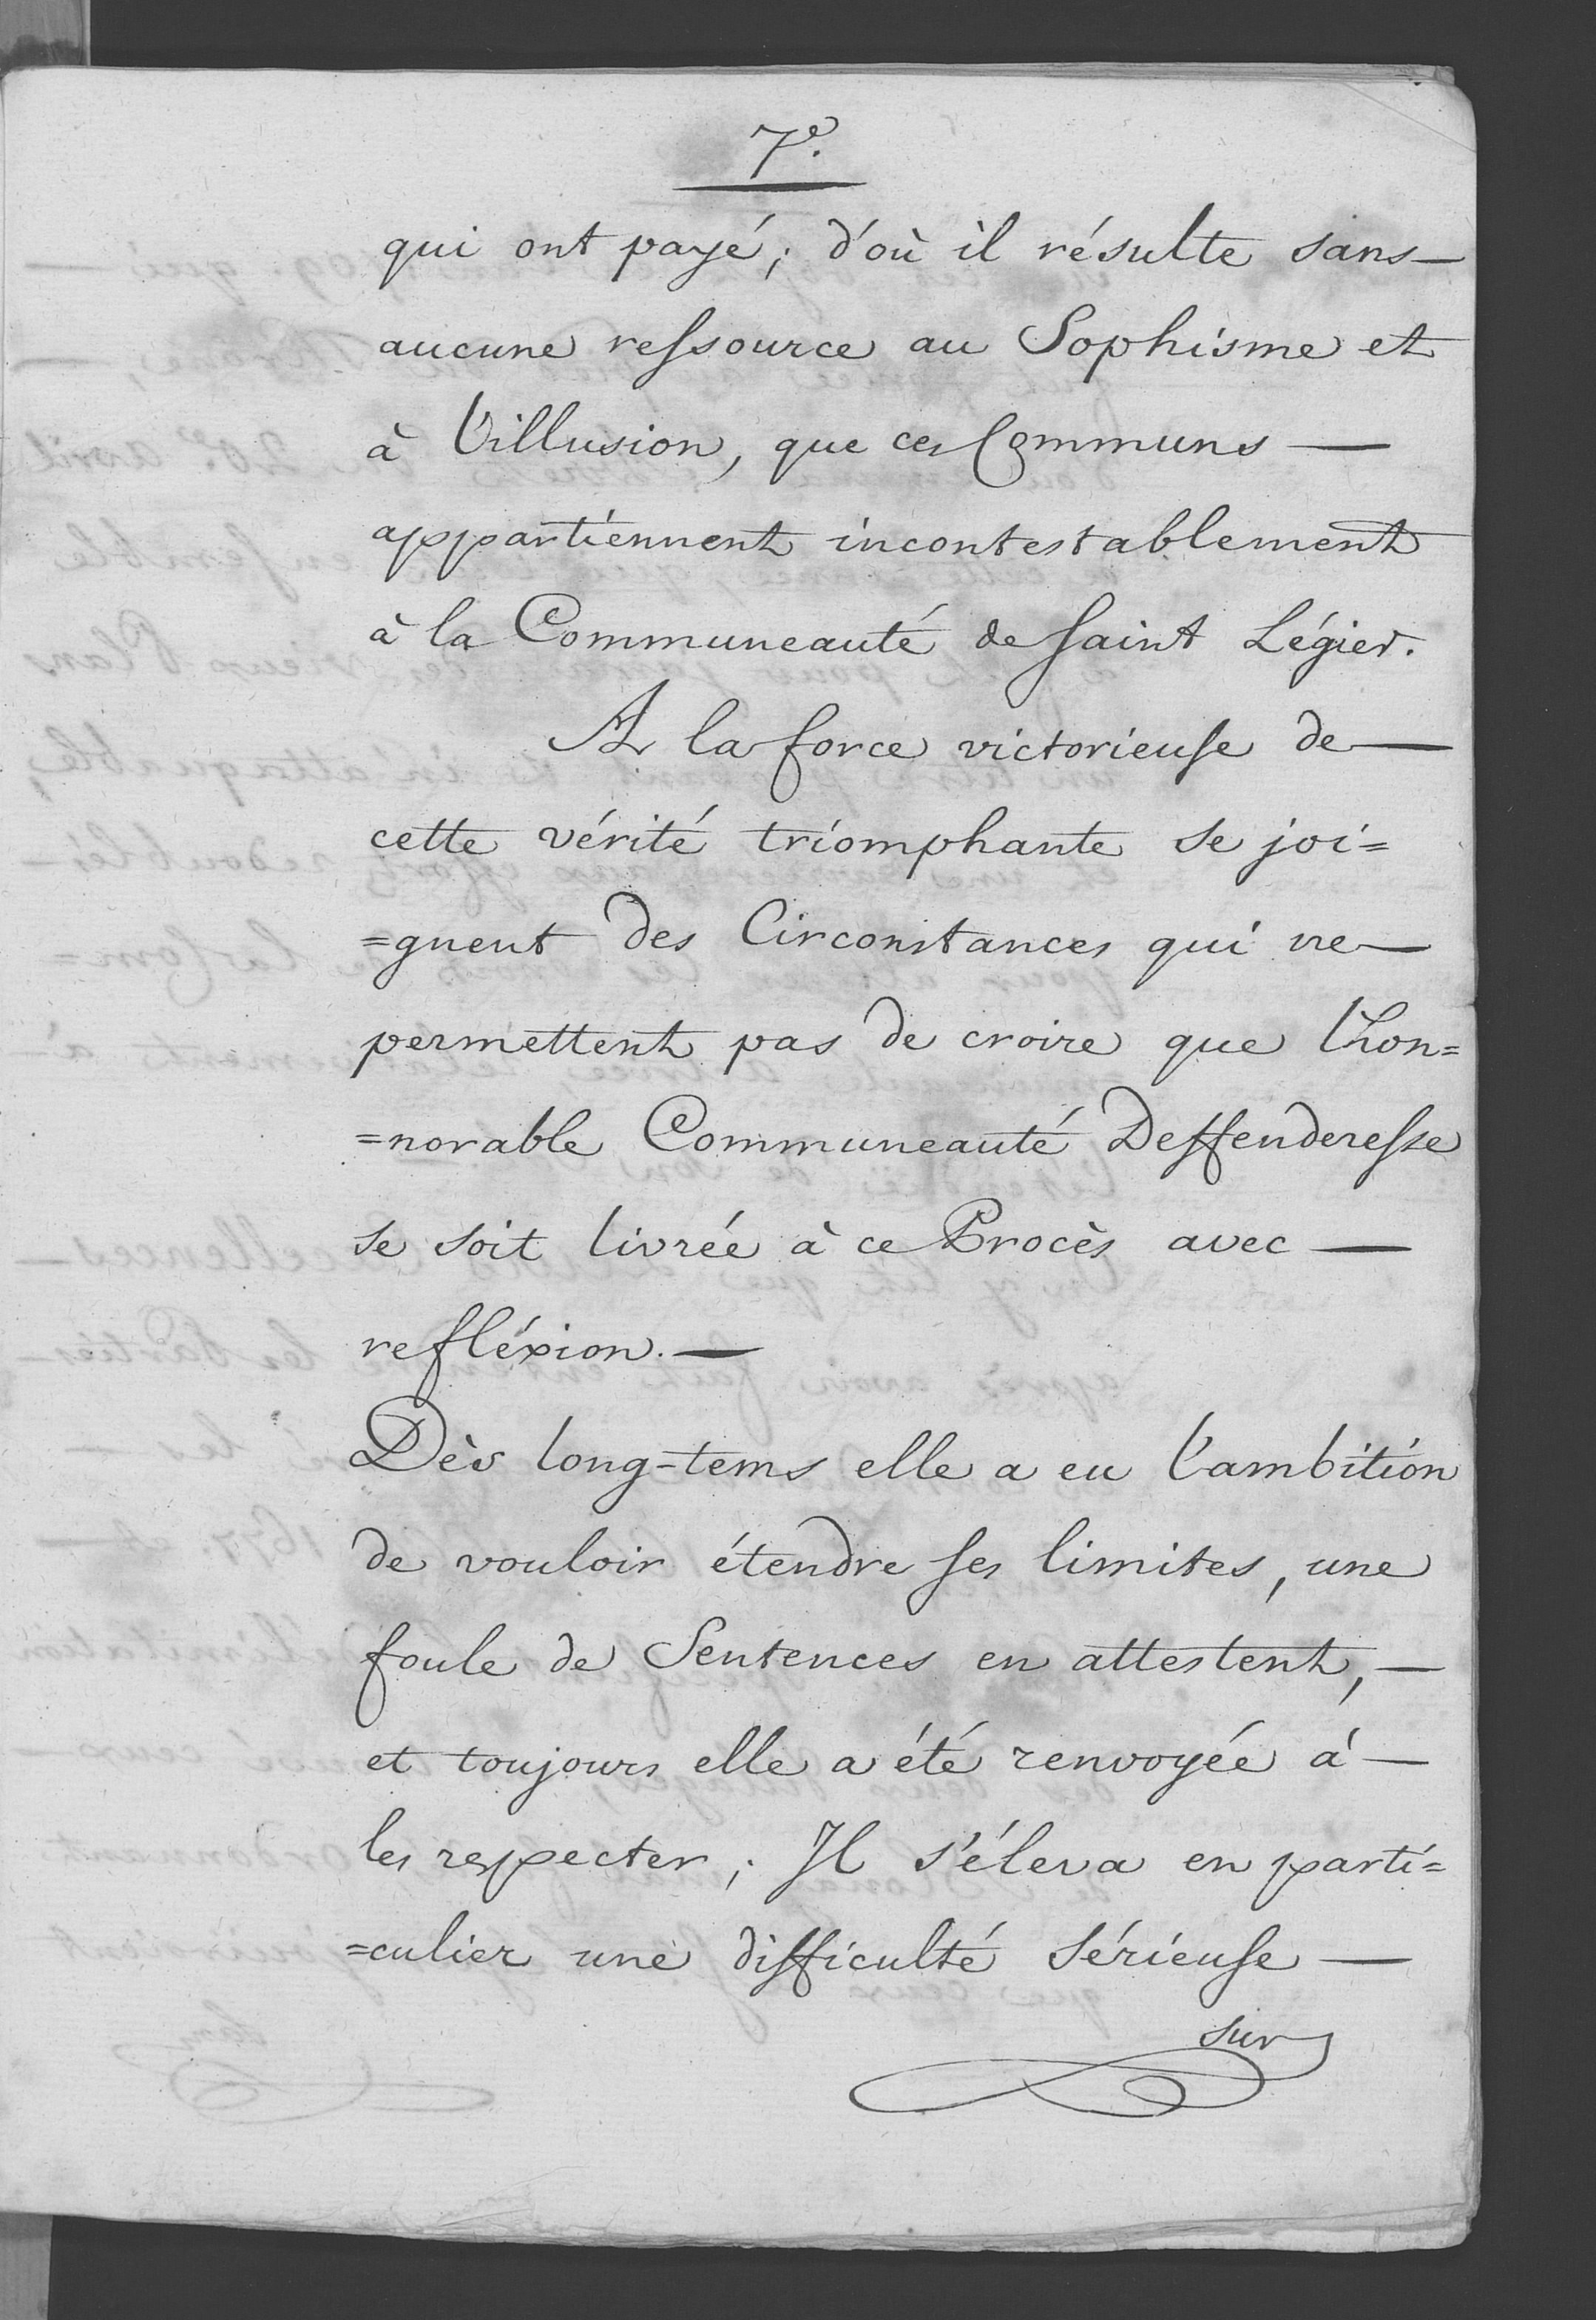 7e.
qui ont payé; d'où il résulte sans —
aucune ressource au Sophisme et
à l'illusion, que ces Communs —
appartiennent incontestablement
à la Communeauté de saint Légier.
A la force victorieuse de —
cette vérité triomphante se joi=
=gnent des Circonstances qui ne —
permettent pas de croire que l'hon=
=norable Communeauté Deffenderesse
se soit livrée à ce Procès avec —
refléxion. —
Dès long-tems elle a eu l'ambition
de vouloir étendre ses limites, une
foule de Sentences en attestent, —
et toujours elle a été renvoyée à —
les respecter; Il s'éleva en parti=
=culier une difficulté sérieuse —
sur